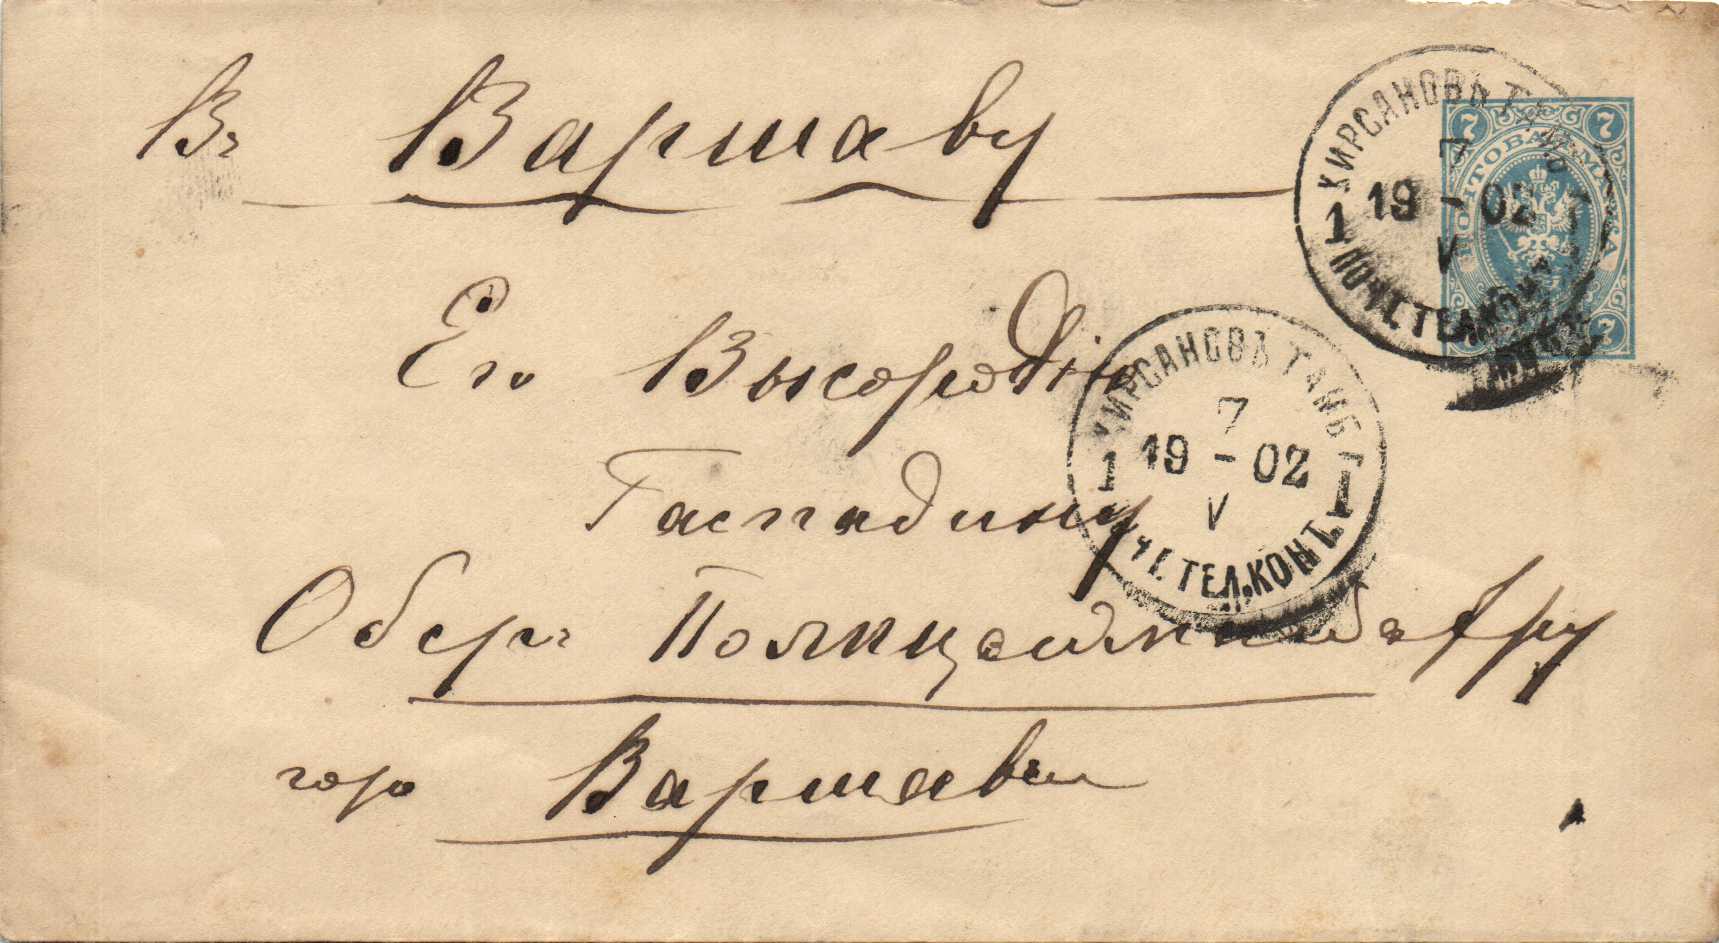 Въ Варшаву
Его Высородію
Гаспадину
Оберъ Полицеймистеру
гор Варшавы
КИРСАНОВЪ ТАМБ. Г.
7
19 - 02
V
1 1
ПОЧТ. ТЕЛ. КОНТ.
КИРСАНОВЪ ТАМБ. Г.
7
19 - 02
V
1 1
ПОЧТ. ТЕЛ. КОНТ.
7 7
ПОЧТОВАЯ МАРКА
7